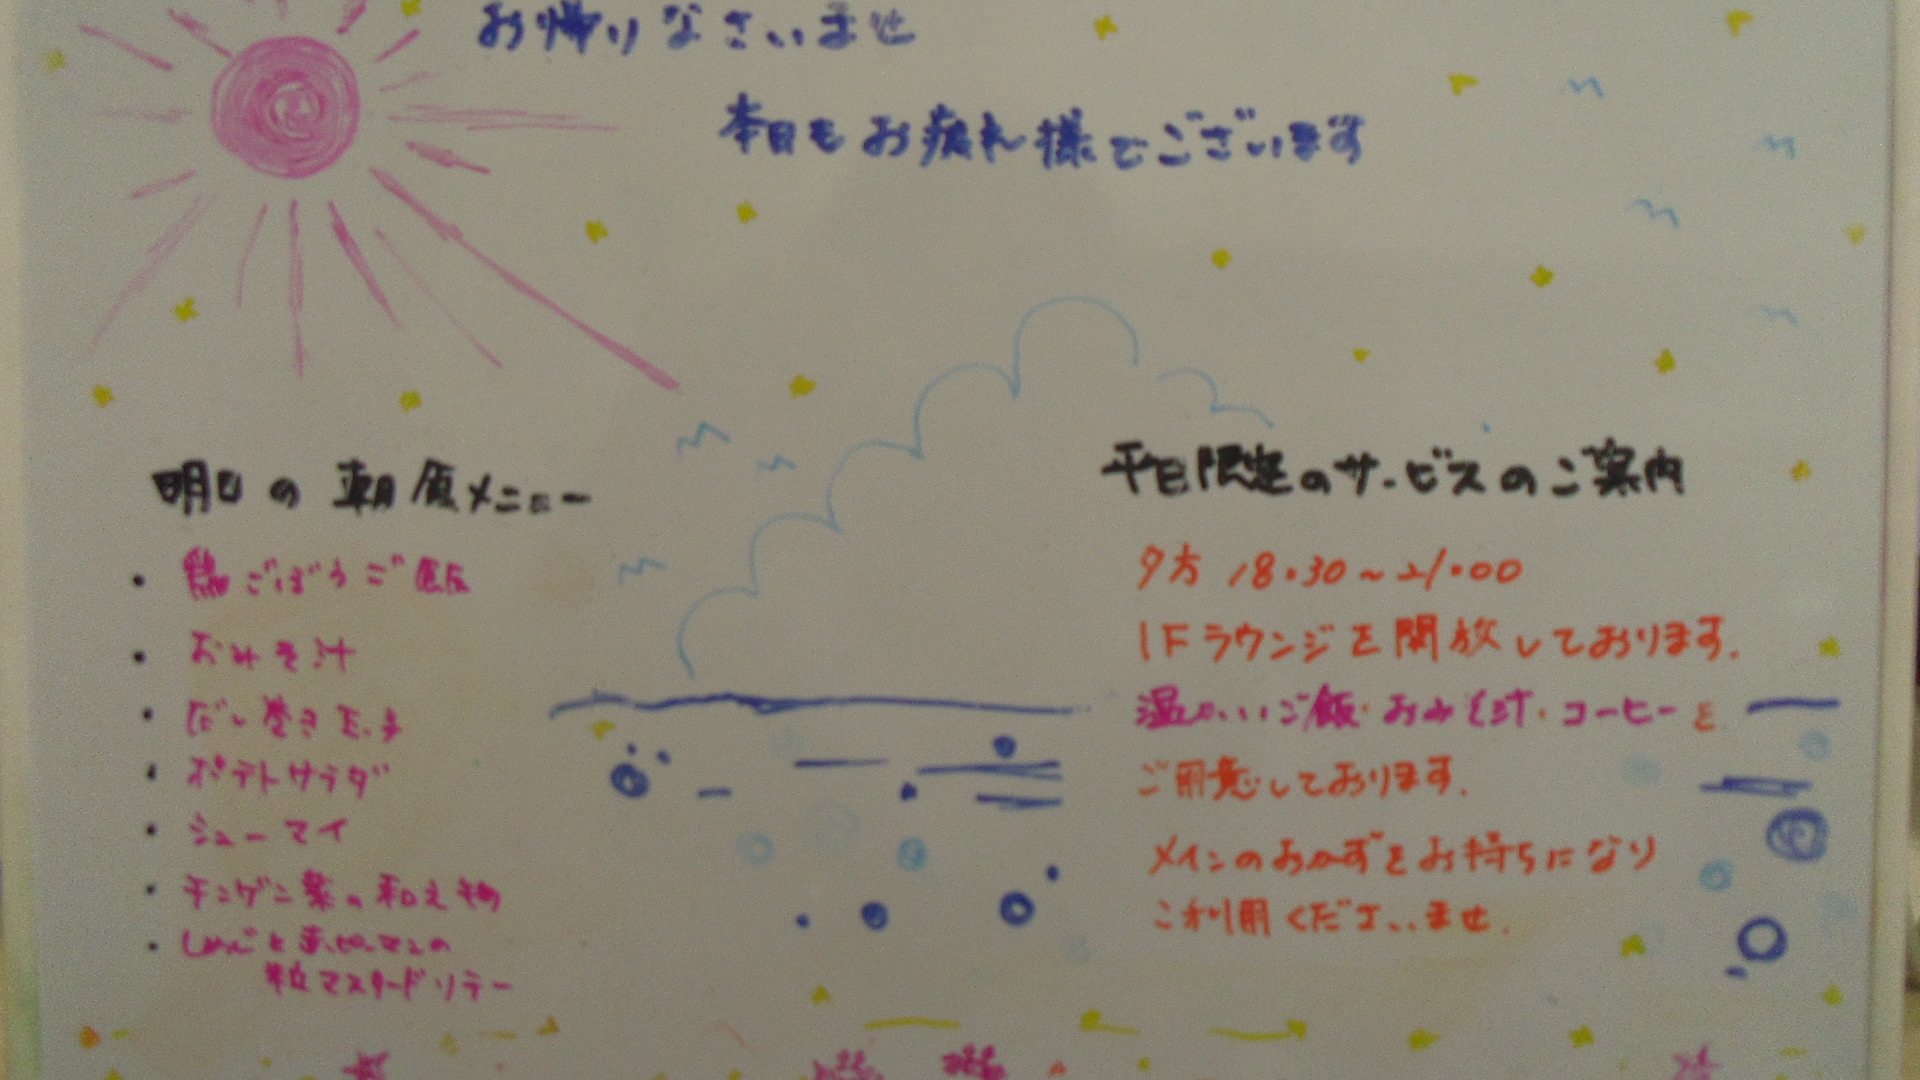 お帰りなさいませ
本日もお疲れ様でございます
明日の朝食メニュー
・鶏ごぼうご飯
・おみそ汁
・だし巻き玉子
・ポテトサラダ
・シューマイ
・チンゲン菜の和え物
・しめじと赤ピーマンの
粒マスタードソテー
平日限定のサービスのご案内
夕方 18:30~21:00
1Fラウンジを開放しております.
温かいご飯・おみそ汁・コーヒーを
ご用意しております.
メインのおかずをお持ちになり
ご利用くださいませ.